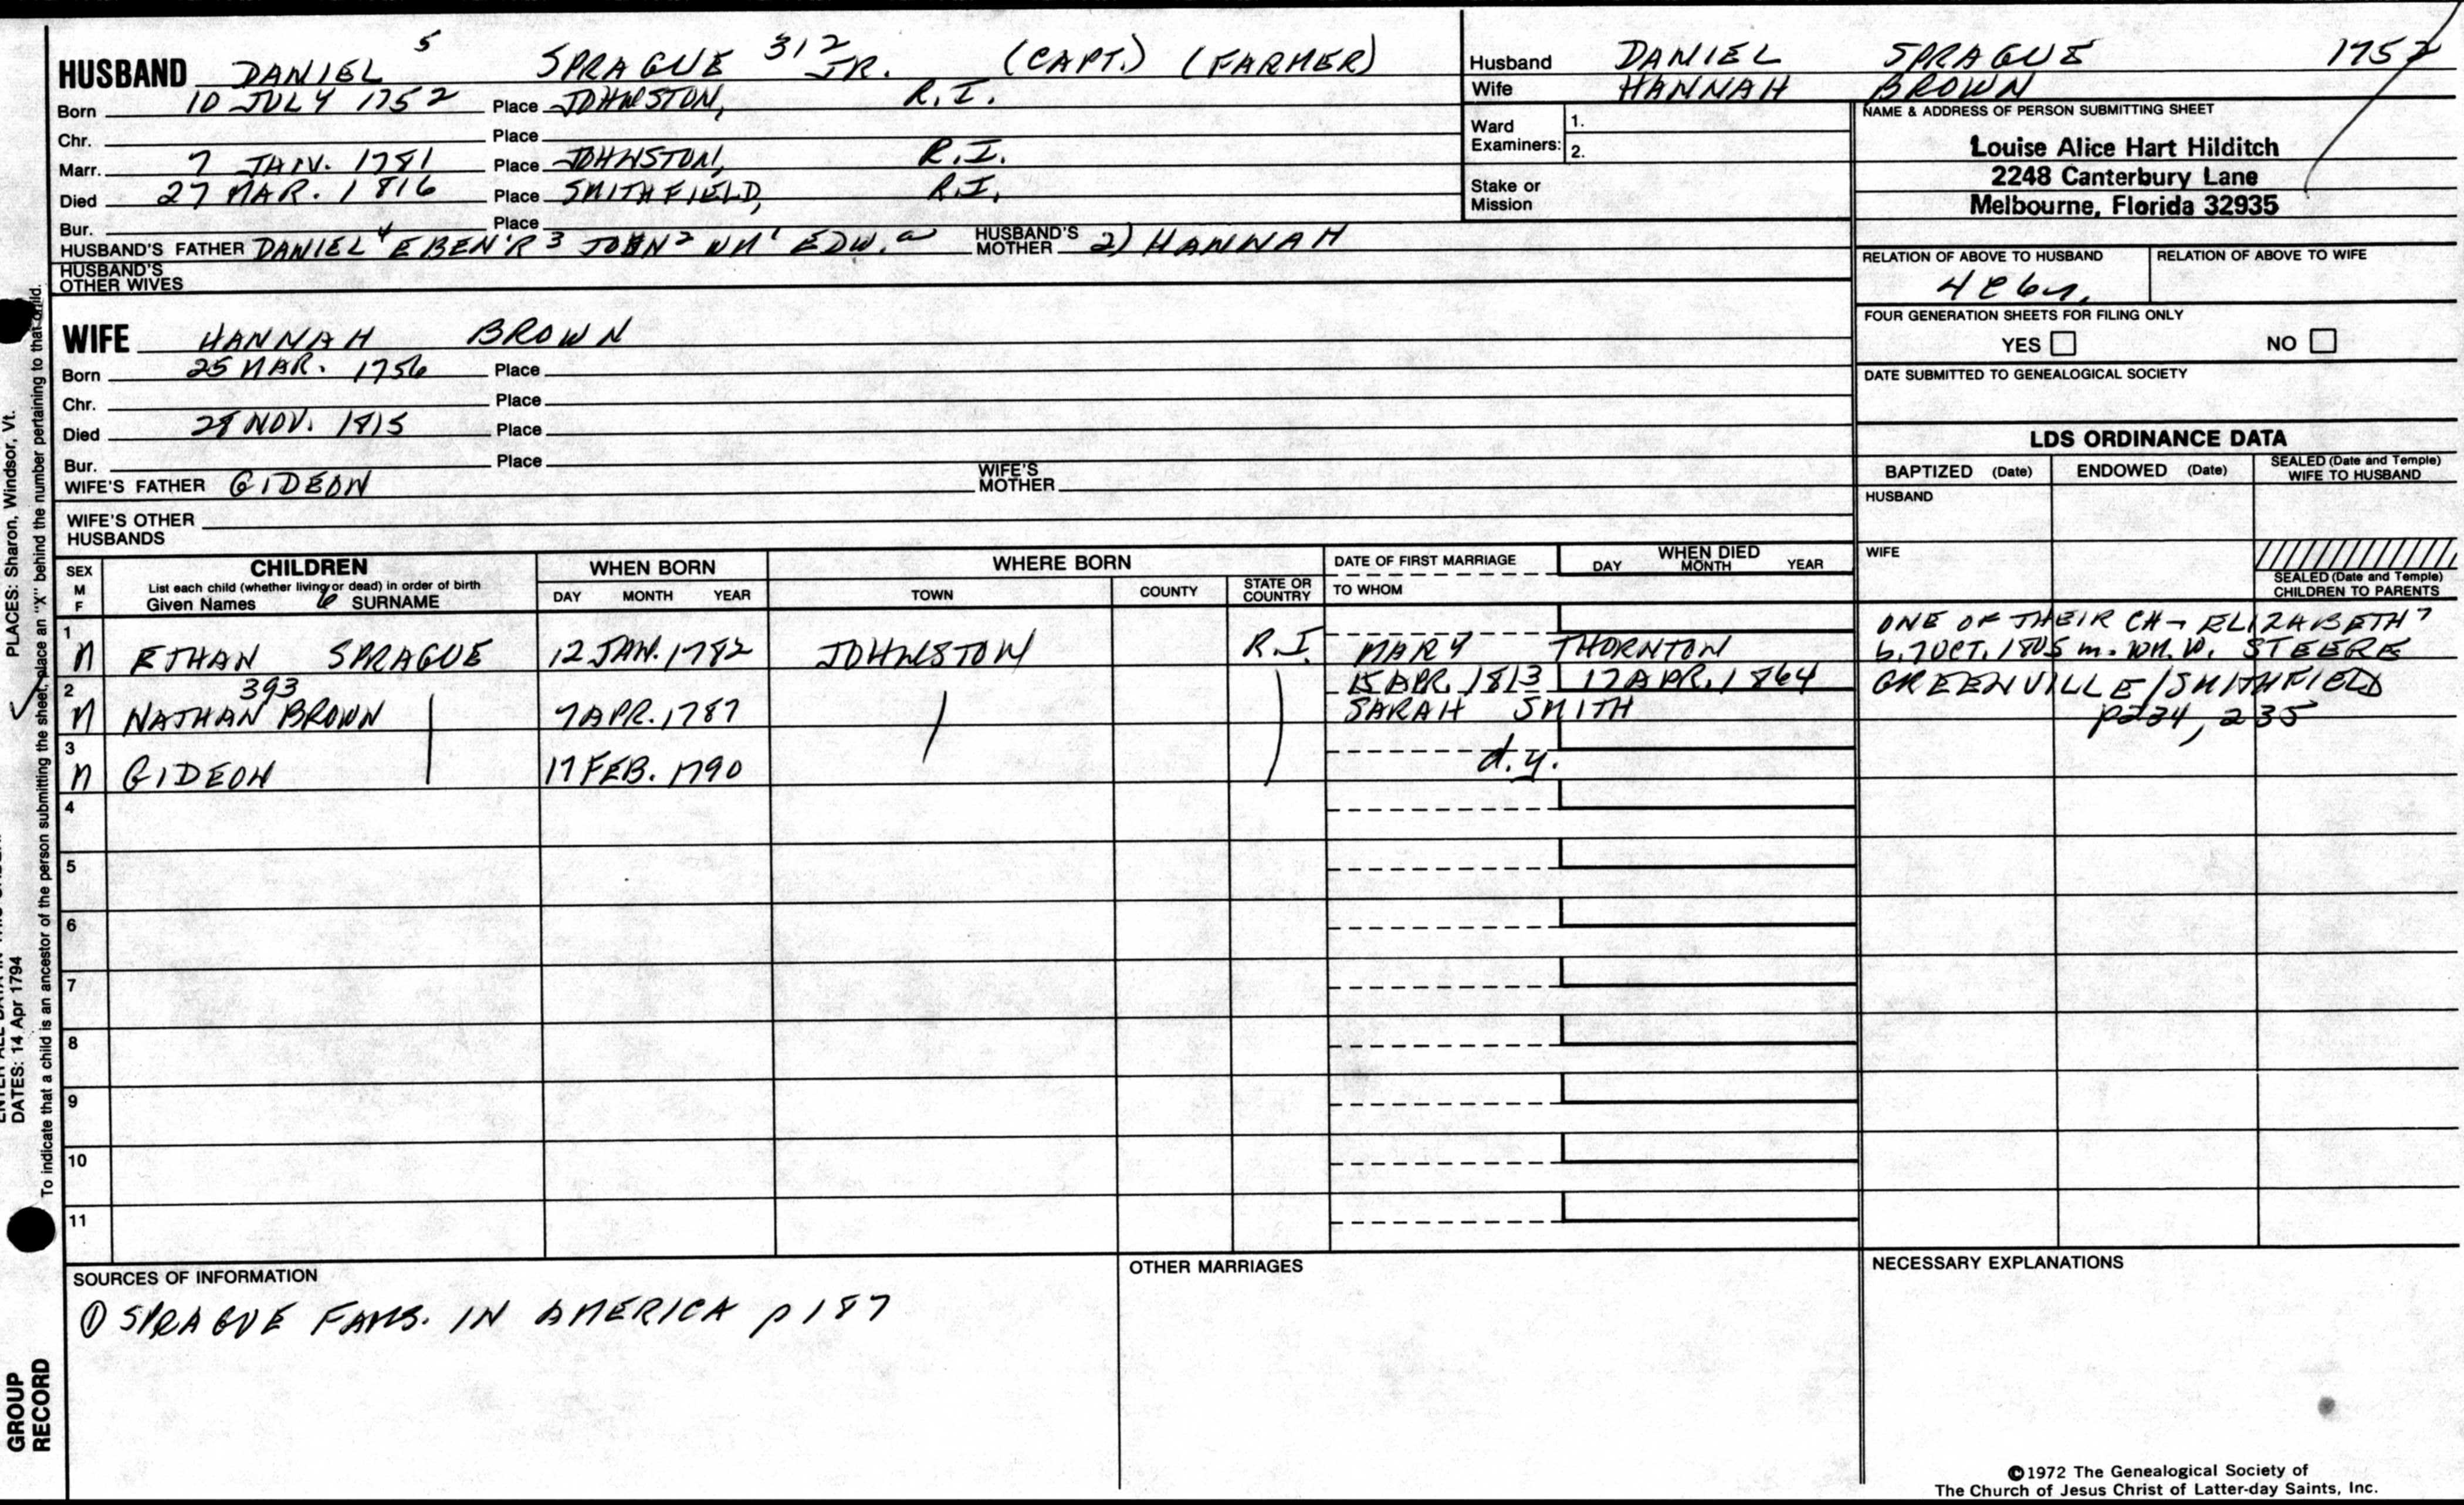 HUSBAND DANIEL 5 SPRAGUE 312 JR. (CAPT.) (FARMER)
Born 10 JULY 1752 Place JOHNSTON, R.I.
Chr. Place
Marr. 7 JAN. 1781 Place JOHNSTON, R.I.
Died 27 MAR. 1816 Place SMITHFIELD, R.I.
Bur. Place
HUSBAND'S FATHER DANIEL 4 EBEN'R 3 JOHN 2 WM 1 EDW. a HUSBAND'S MOTHER 2) HANNAH
HUSBAND'S OTHER WIVES
Husband DANIEL SPRAGUE 1752
Wife HANNAH BROWN
Ward Examiners: 1.
2.
Stake or Mission
NAME & ADDRESS OF PERSON SUBMITTING SHEET
Louise Alice Hart Hilditch
2248 Canterbury Lane
Melbourne, Florida 32935
RELATION OF ABOVE TO HUSBAND RELATION OF ABOVE TO WIFE
FOUR GENERATION SHEETS FOR FILING ONLY
YES NO
DATE SUBMITTED TO GENEALOGICAL SOCIETY
WIFE HANNAH BROWN
Born 25 MAR. 1756 Place
Chr. Place
Died 28 NOV. 1815 Place
Bur. Place
WIFE'S FATHER GIDEON WIFE'S MOTHER
WIFE'S OTHER HUSBANDS
LDS ORDINANCE DATA
BAPTIZED (Date) ENDOWED (Date) SEALED (Date and Temple) WIFE TO HUSBAND
HUSBAND
WIFE
SEALED (Date and Temple) CHILDREN TO PARENTS
SEX M F
CHILDREN
List each child (whether living or dead) in order of birth
Given Names 6 SURNAME
WHEN BORN
DAY MONTH YEAR
WHERE BORN
TOWN COUNTY STATE OR COUNTRY
DATE OF FIRST MARRIAGE
TO WHOM
WHEN DIED
DAY MONTH YEAR
1
M ETHAN SPRAGUE 12 JAN. 1782 JOHNSTON R.I. MARY THORNTON
2 393 15 APR. 1813 17 APR. 1864
M NATHAN BROWN 7 APR. 1787 SARAH SMITH
3
M GIDEON 17 FEB. 1790 d.y.
4
5
6
7
8
9
10
11
ONE OF THEIR CH - ELIZABETH 7
b. 7 OCT. 1805 m. WM. W. STEERE
GREENVILLE/SMITHFIELD
p234, 235
SOURCES OF INFORMATION
① SPRAGUE FAMS. IN AMERICA p 187
OTHER MARRIAGES
NECESSARY EXPLANATIONS
©1972 The Genealogical Society of
The Church of Jesus Christ of Latter-day Saints, Inc.
PLACES: Sharon, Windsor, Vt.
DATES: 14 Apr 1794
To indicate that a child is an ancestor of the person submitting the sheet, place an "X" behind the number pertaining to that child.
GROUP
RECORD